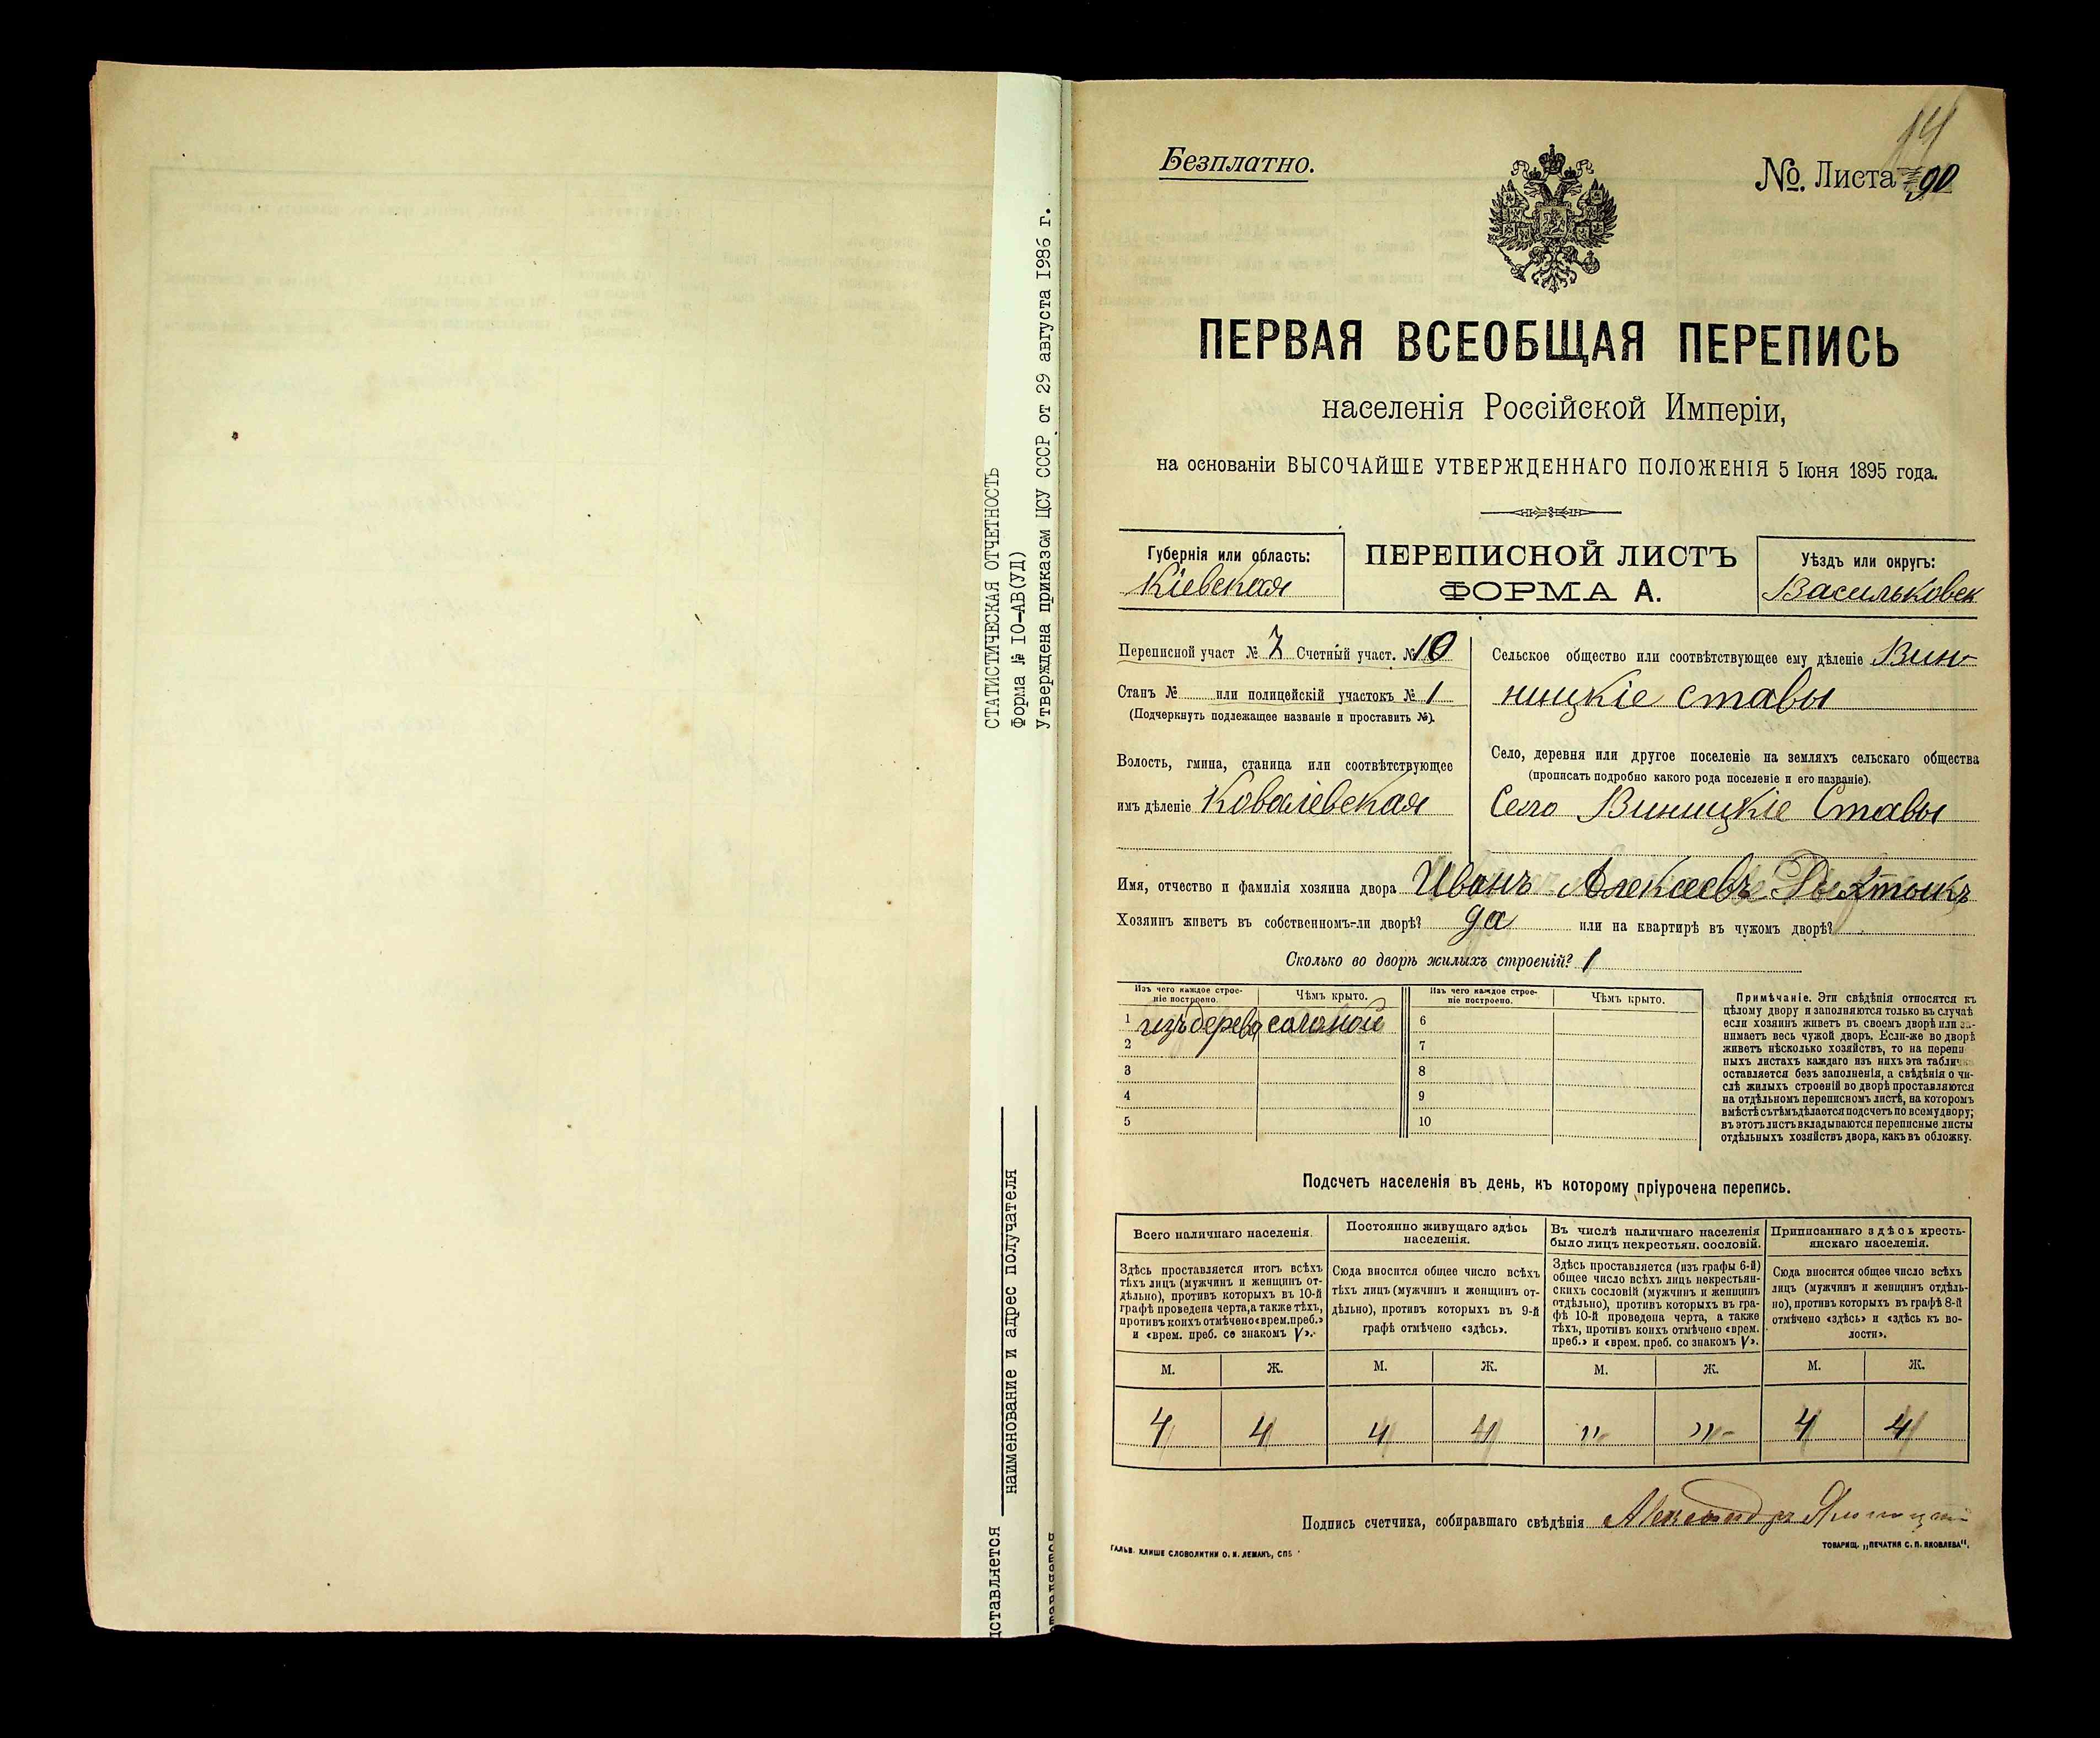 СТАТИСТИЧЕСКАЯ ОТЧЕТНОСТЬ
Форма № 10-АВ(УД)
Утверждена приказом ЦСУ СССР от 29 августа 1986 г.
наименование и адрес получателя
дставляется
Безплатно.
№. Листа 90
ПЕРВАЯ ВСЕОБЩАЯ ПЕРЕПИСЬ
населенія Россійской Имперіи,
на основаніи ВЫСОЧАЙШЕ УТВЕРЖДЕННАГО ПОЛОЖЕНІЯ 5 Іюня 1895 года.
Губернія или область:
Кіевская
ПЕРЕПИСНОЙ ЛИСТЪ
ФОРМА А.
Уѣздъ или округъ:
Васильковск
Переписной участ № 7 Счетный участ. № 10
Станъ № или полицейскій участокъ № 1
(Подчеркнуть подлежащее названіе и проставить №).
Волость, гмина, станица или соотвѣтствующее
имъ дѣленіе Ковалевская
Сельское общество или соотвѣтствующее ему дѣленіе Вин-
ницкіе ставы
Село, деревня или другое поселеніе на земляхъ сельскаго общества
(прописать подробно какого рода поселеніе и его названіе).
Село Виницкіе Ставы
Имя, отчество и фамилія хозяина двора Иванъ Алексеевъ
Хозяинъ живетъ въ собственномъ-ли дворѣ? да или на квартирѣ въ чужомъ дворѣ?
Сколько во дворѣ жилыхъ строеній? 1
Изъ чего каждое строе-
ніе построено.
Чѣмъ крыто.
Изъ чего каждое строе-
ніе построено.
Чѣмъ крыто.
1 изъ дерева соломой 6
2 7
3 8
4 9
5 10
Примѣчаніе. Эти свѣдѣнія относятся къ
цѣлому двору и заполняются только въ случаѣ
если хозяинъ живетъ въ своемъ дворѣ или за-
нимаетъ весь чужой дворъ. Если-же во дворѣ
живетъ нѣсколько хозяйствъ, то на перепи
ныхъ листахъ каждаго изъ нихъ эта табличк
оставляется безъ заполненія, а свѣдѣнія о чи-
слѣ жилыхъ строеній во дворѣ проставляются
на отдѣльномъ переписномъ листѣ, на которомъ
вмѣстѣ съ тѣмъ дѣлается подсчетъ по всему двору;
въ этотъ листъ вкладываются переписные листы
отдѣльныхъ хозяйствъ двора, какъ въ обложку.
Подсчетъ населенія въ день, къ которому пріурочена перепись.
Всего наличнаго населенія.
Здѣсь проставляется итогъ всѣхъ
тѣхъ лицъ (мужчинъ и женщинъ от-
дѣльно), противъ которыхъ въ 10-й
графѣ проведена черта, а также тѣхъ,
противъ коихъ отмѣчено «врем. преб.»
и «врем. преб. со знакомъ V».
Постоянно живущаго здѣсь
населенія.
Сюда вносится общее число всѣхъ
тѣхъ лицъ (мужчинъ и женщинъ от-
дѣльно), противъ которыхъ въ 9-й
графѣ отмѣчено «здѣсь».
Въ числѣ наличнаго населенія
было лицъ некрестьян. сословій.
Здѣсь проставляется (изъ графы 6-й)
общее число всѣхъ лицъ некрестьян-
скихъ сословій (мужчинъ и женщинъ
отдѣльно), противъ которыхъ въ гра-
фѣ 10-й проведена черта, а также
тѣхъ, противъ коихъ отмѣчено «врем.
преб.» и «врем. преб. со знакомъ V».
Приписаннаго здѣсь кресть-
янскаго населенія.
Сюда вносится общее число всѣхъ
лицъ (мужчинъ и женщинъ отдѣль-
но), противъ которыхъ въ графѣ 8-й
отмѣчено «здѣсь» и «здѣсь къ во-
лости».
М. Ж. М. Ж. М. Ж. М. Ж.
4 4 4 4 " " 4 4
Подпись счетчика, собиравшаго свѣдѣнія
ГАЛЬВ. КЛИШЕ СЛОВОЛИТНИ О. И. ЛЕМАНЪ, СПБ
ТОВАРИЩ. „ПЕЧАТНЯ С. П. ЯКОВЛЕВА“.